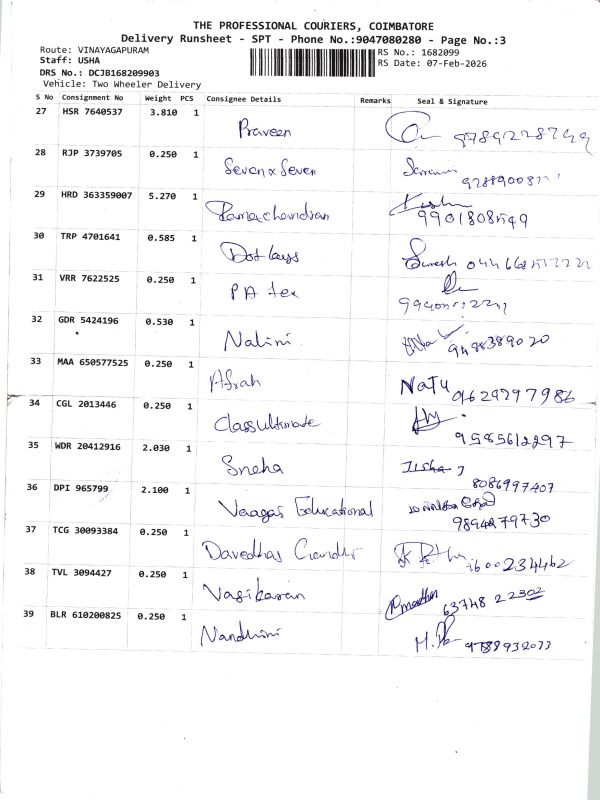 THE PROFESSIONAL COURIERS, COIMBATORE
Delivery Runsheet - SPT - Phone No.:9047080280 - Page No.:3
Route: VINAYAGAPURAM
RS No.: 1682099
Staff: USHA
RS Date: 07-Feb-2026
DRS No.: DCJB168209903
Vehicle: Two Wheeler Delivery
S No Consignment No Weight PCS Consignee Details Remarks Seal & Signature
27 HSR 7640537 3.810 1 Praveen
28 RJP 3739705 0.250 1 Seven x Seven
29 HRD 363359007 5.270 1 Ramachandran 9901808549
30 TRP 4701641 0.585 1 Dot keys Suresh
31 VRR 7622525 0.250 1 PA tex
32 GDR 5424196 0.530 1 Nalini 9498389020
33 MAA 650577525 0.250 1 Afrah Natu 9629797986
34 CGL 2013446 0.250 1 Classultimate 9585612297
35 WDR 20412916 2.030 1 Sneha Jisha J 8086997407
36 DPI 965799 2.100 1 Vaagai Educational 9894279730
37 TCG 30093384 0.250 1 Davedhas Chandhr 9600234462
38 TVL 3094427 0.250 1 Vasikaran 63748 22302
39 BLR 610200825 0.250 1 Nandhini 9788932073